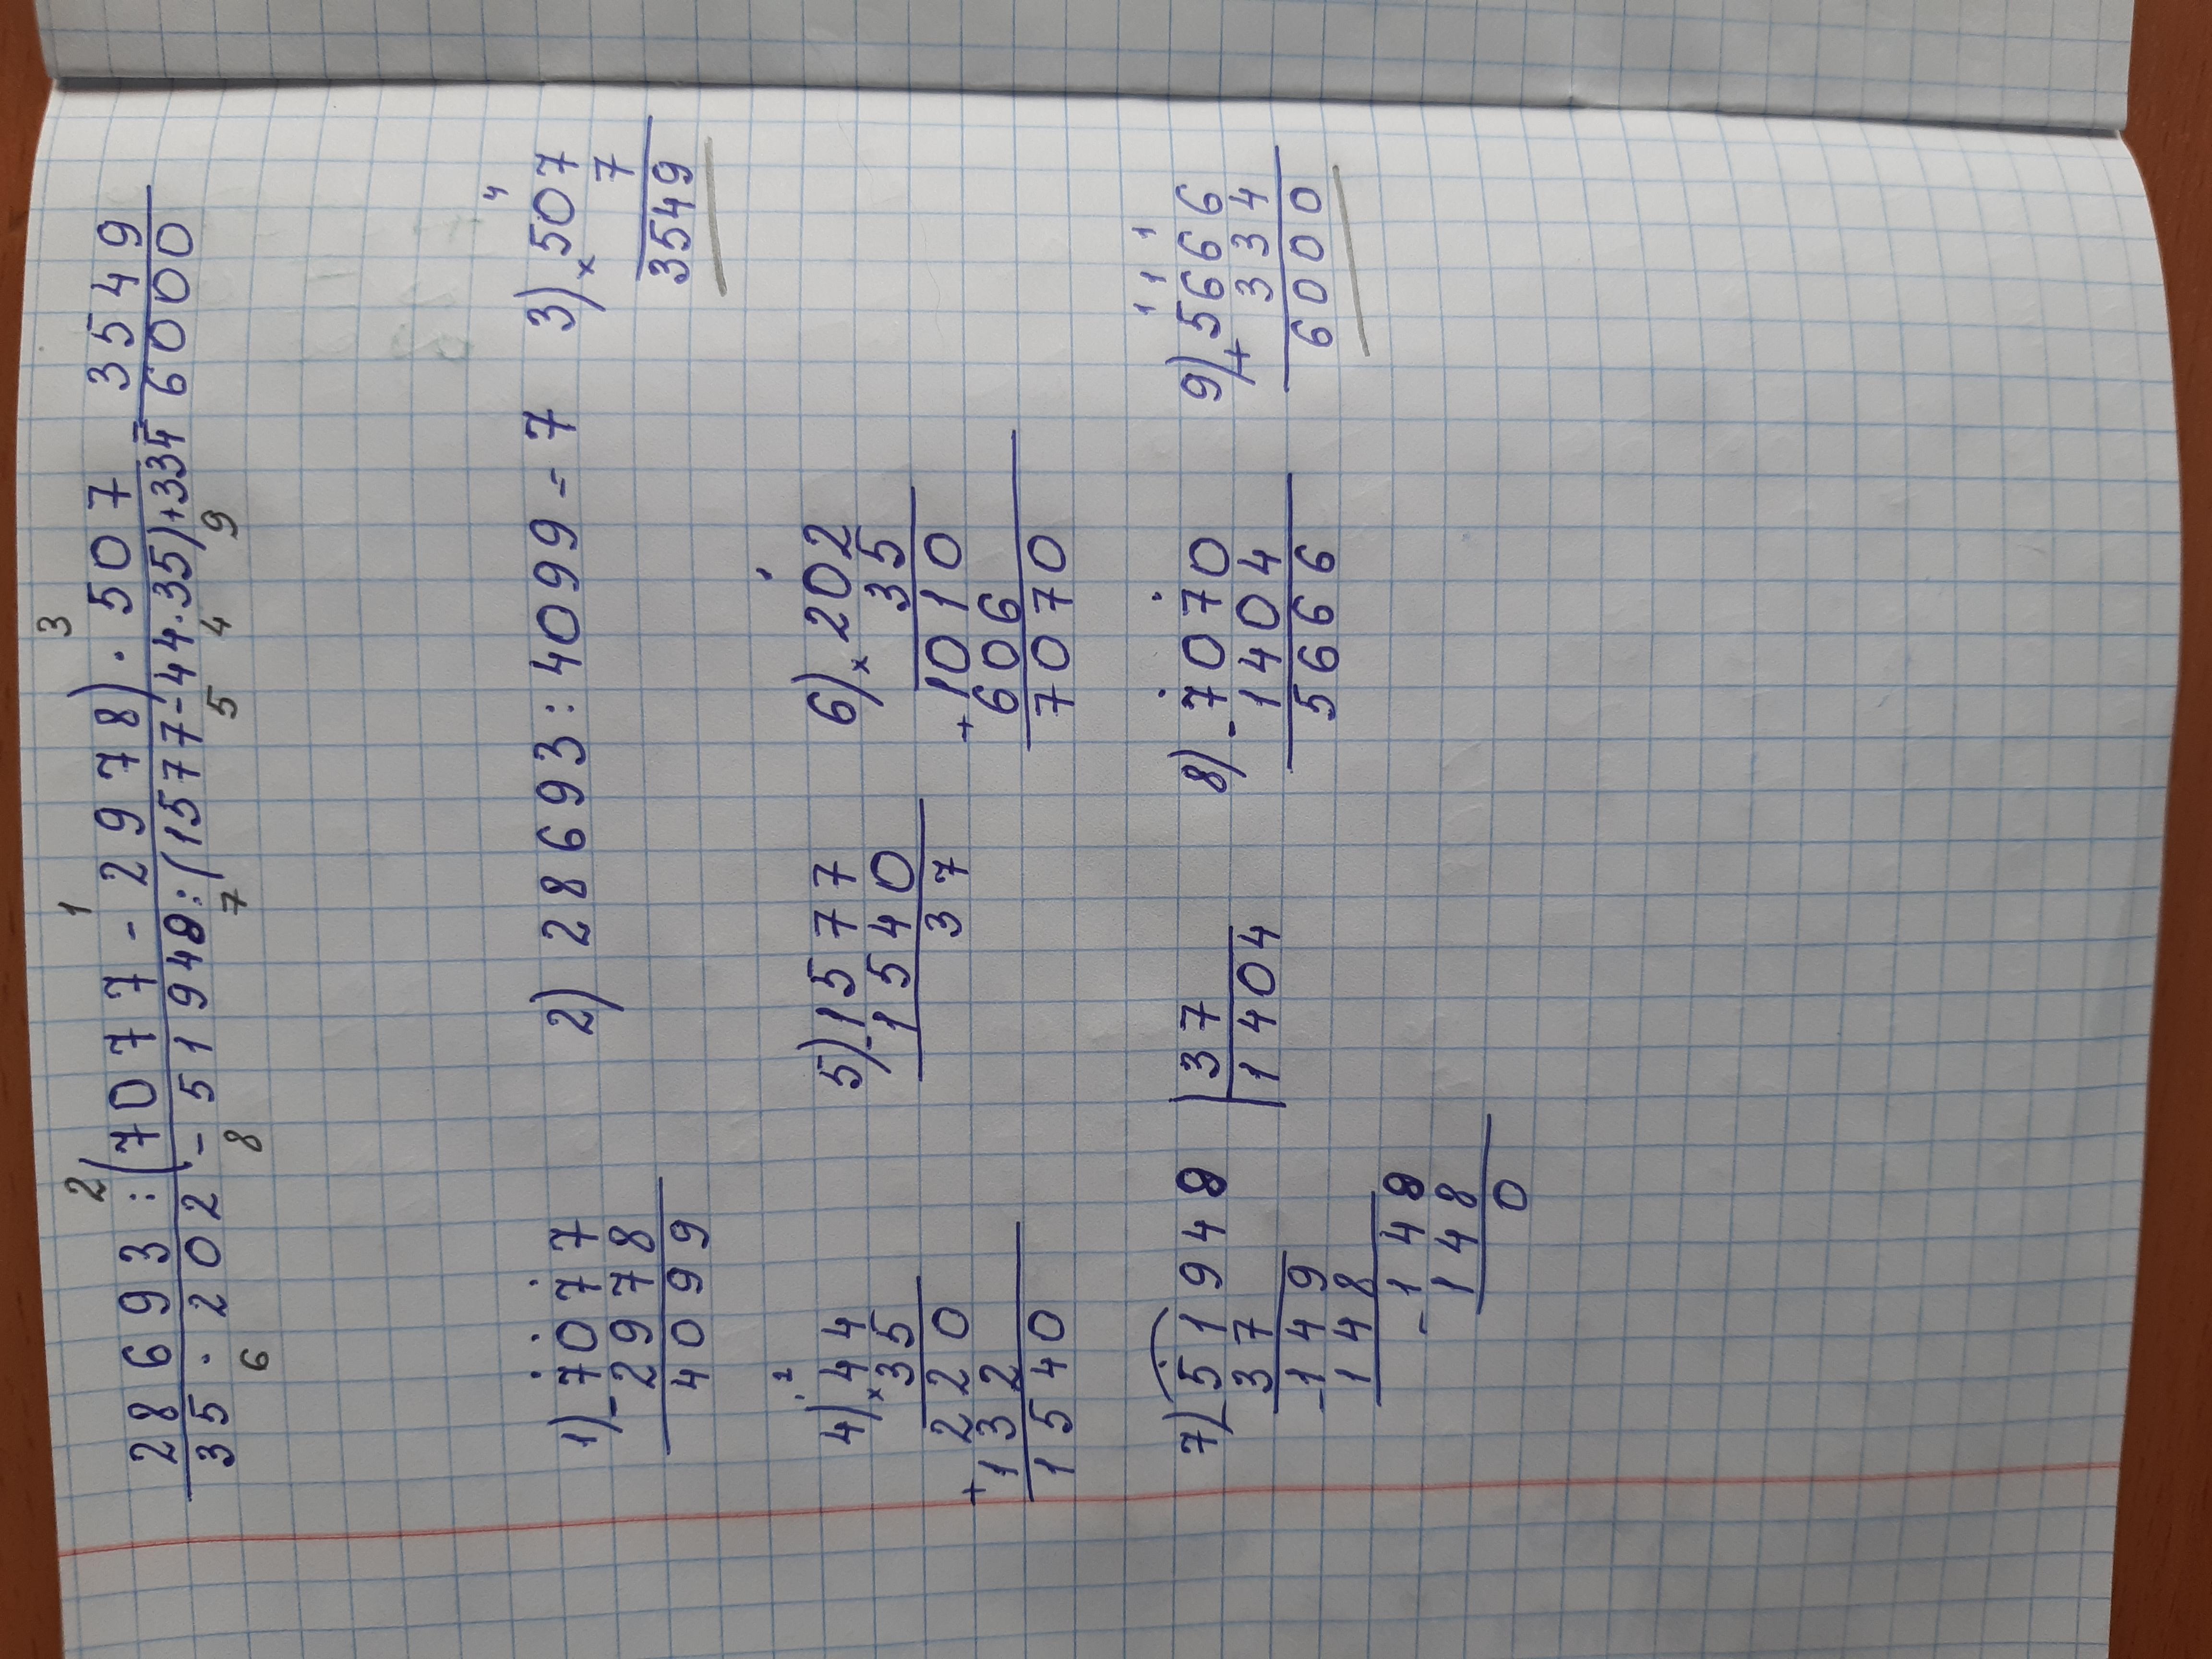 2 1 3
28693 : (7077 - 2978) · 507 = 3549
35 · 202 - 51948 : (1577 - 44 · 35) + 334 6000
6 8 7 5 4 9
4
1) 7077 2) 28693 : 4099 = 7 3) × 507
- 2978 7
4099 3549
2
4) 44 5) - 1577 6) × 202
× 35 1540 35
220 37 + 1010
+ 132 606
1540 7070
1 1 1
7) - 51948 | 37 8) - 7070 9) + 5666
37 1404 1404 334
- 149 5666 6000
148
- 148
148
0